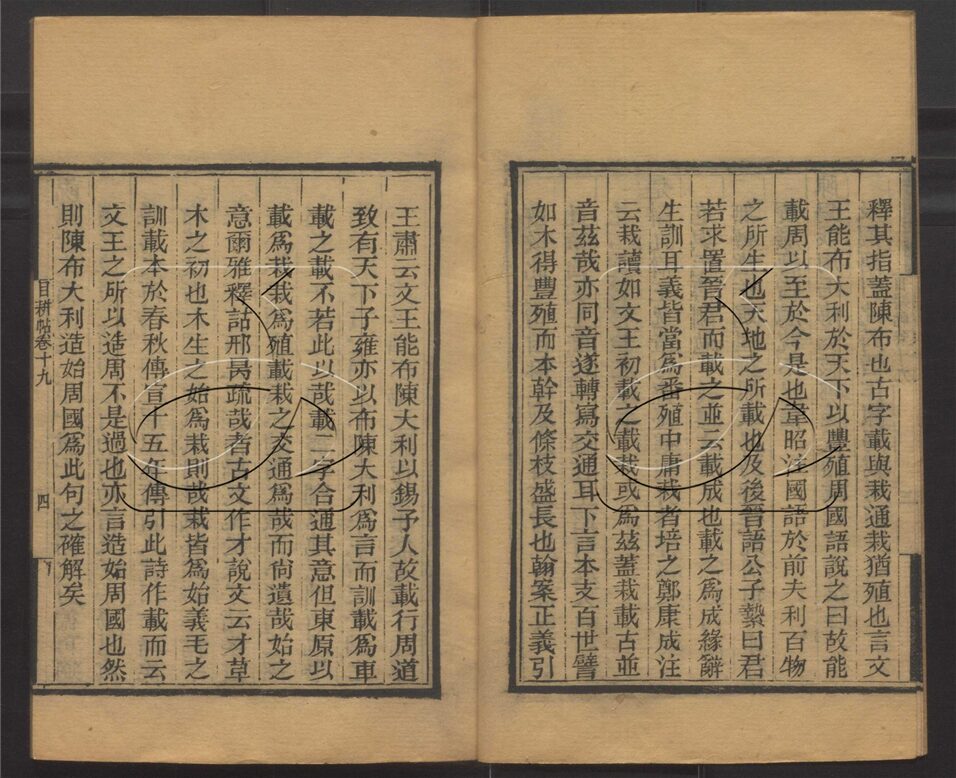 釋其指蓋陳布也古字載與栽通栽猶殖也言文
王能布大利於天下以豐殖周國語說之曰故能
載周以至於今是也韋昭注國語於前夫利百物
之所生也天地之所載也及後晉語公子縶曰君
若求置晉君而載之並云載成也載之爲成緣辭
生訓耳義皆當爲番殖中庸栽者培之鄭康成注
云栽讀如文王初載之載栽或爲茲蓋栽載古並
音茲哉亦同音遂轉寫交通耳下言本支百世譬
如木得豐殖而本幹及條枝盛長也翰案正義引
王肅云文王能布陳大利以錫予人故載行周道
致有天下子雍亦以布陳大利爲言而訓載爲車
載之載不若此以哉載二字合通其意但東原以
載爲栽栽爲殖載栽之交通爲哉而尙遺哉始之
意爾雅釋詁邢昺疏哉者古文作才說文云才草
木之初也木生之始爲栽則哉栽皆爲始義毛之
訓載本於春秋傳宣十五年傳引此詩作載而云
文王之所以造周不是過也亦言造始周國也然
則陳布大利造始周國爲此句之確解矣
目耕帖卷十九
四